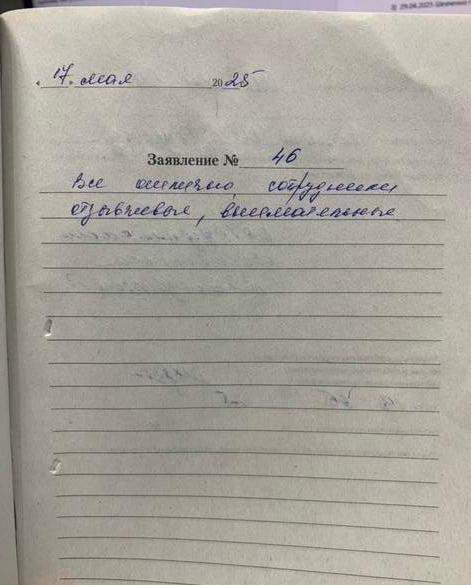 29.04.2025
17. мая 2025
Заявление № 46
Все отлично, сотрудники
отзывчевые, внимательные